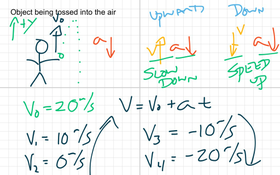 Object being tossed into the air
↑+y
V₀
a↓
UPWARD
DOWN
V↑ a↓
V↓ a↓
SLOW DOWN
SPEED UP
V₀ = 20 m/s
V₁ = 10 m/s
V₂ = 0 m/s
V = V₀ + a t
V₃ = -10 m/s
V₄ = -20 m/s